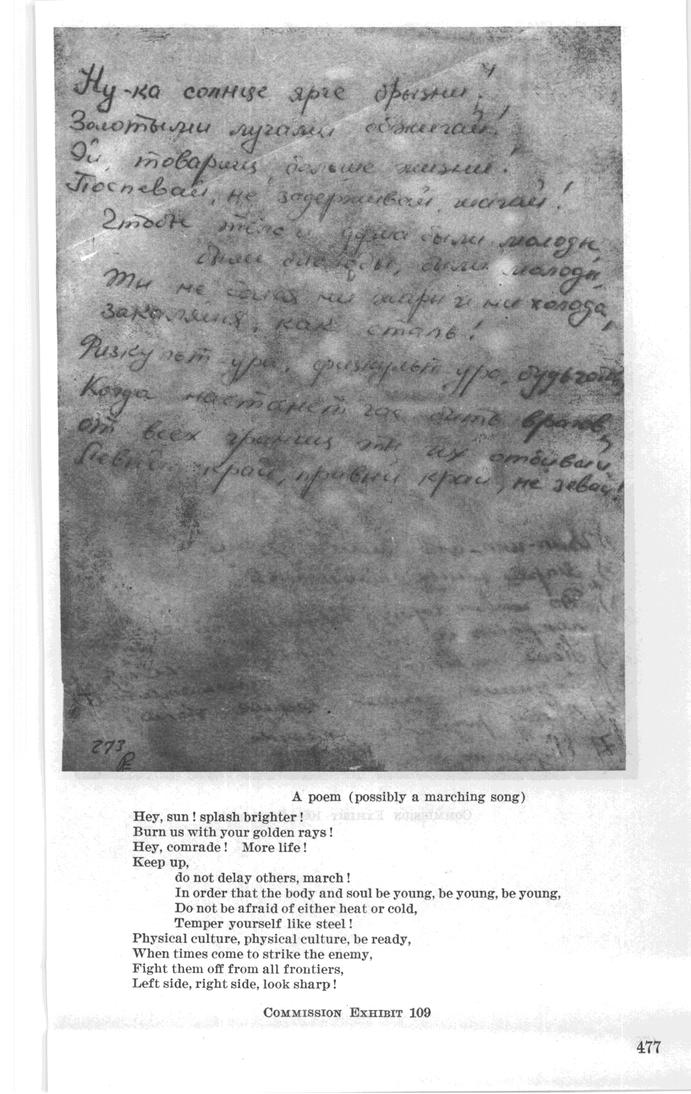 Ну-ка солнце ярче брызни!
Золотыми лучами обжигай!
Эй, товарищ, больше жизни!
Поспевай, не задерживай, шагай!
Чтобы тело и душа были молоды,
были молоды, были молоды,
Ты не бойся ни жары и ни холода,
Закаляйся, как сталь!
Физкульт ура, физкульт ура, будь готов,
Когда настанет час бить врагов,
от всех границ ты их отбивай,
Левый край, правый край, не зевай!
273
A poem (possibly a marching song)
Hey, sun! splash brighter!
Burn us with your golden rays!
Hey, comrade! More life!
Keep up,
do not delay others, march!
In order that the body and soul be young, be young, be young,
Do not be afraid of either heat or cold,
Temper yourself like steel!
Physical culture, physical culture, be ready,
When times come to strike the enemy,
Fight them off from all frontiers,
Left side, right side, look sharp!
COMMISSION EXHIBIT 109
477